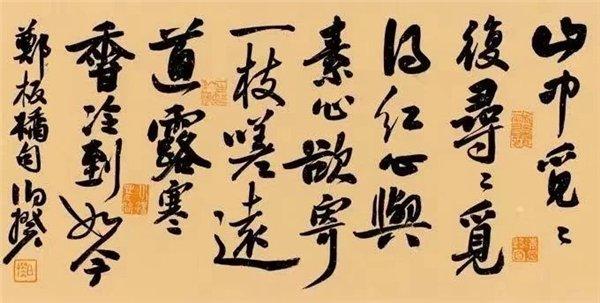 山中覓々
復尋々覓
得紅心與
素心欲寄
一枝嗟遠
道露寒
香冷到如今
鄭板橋句